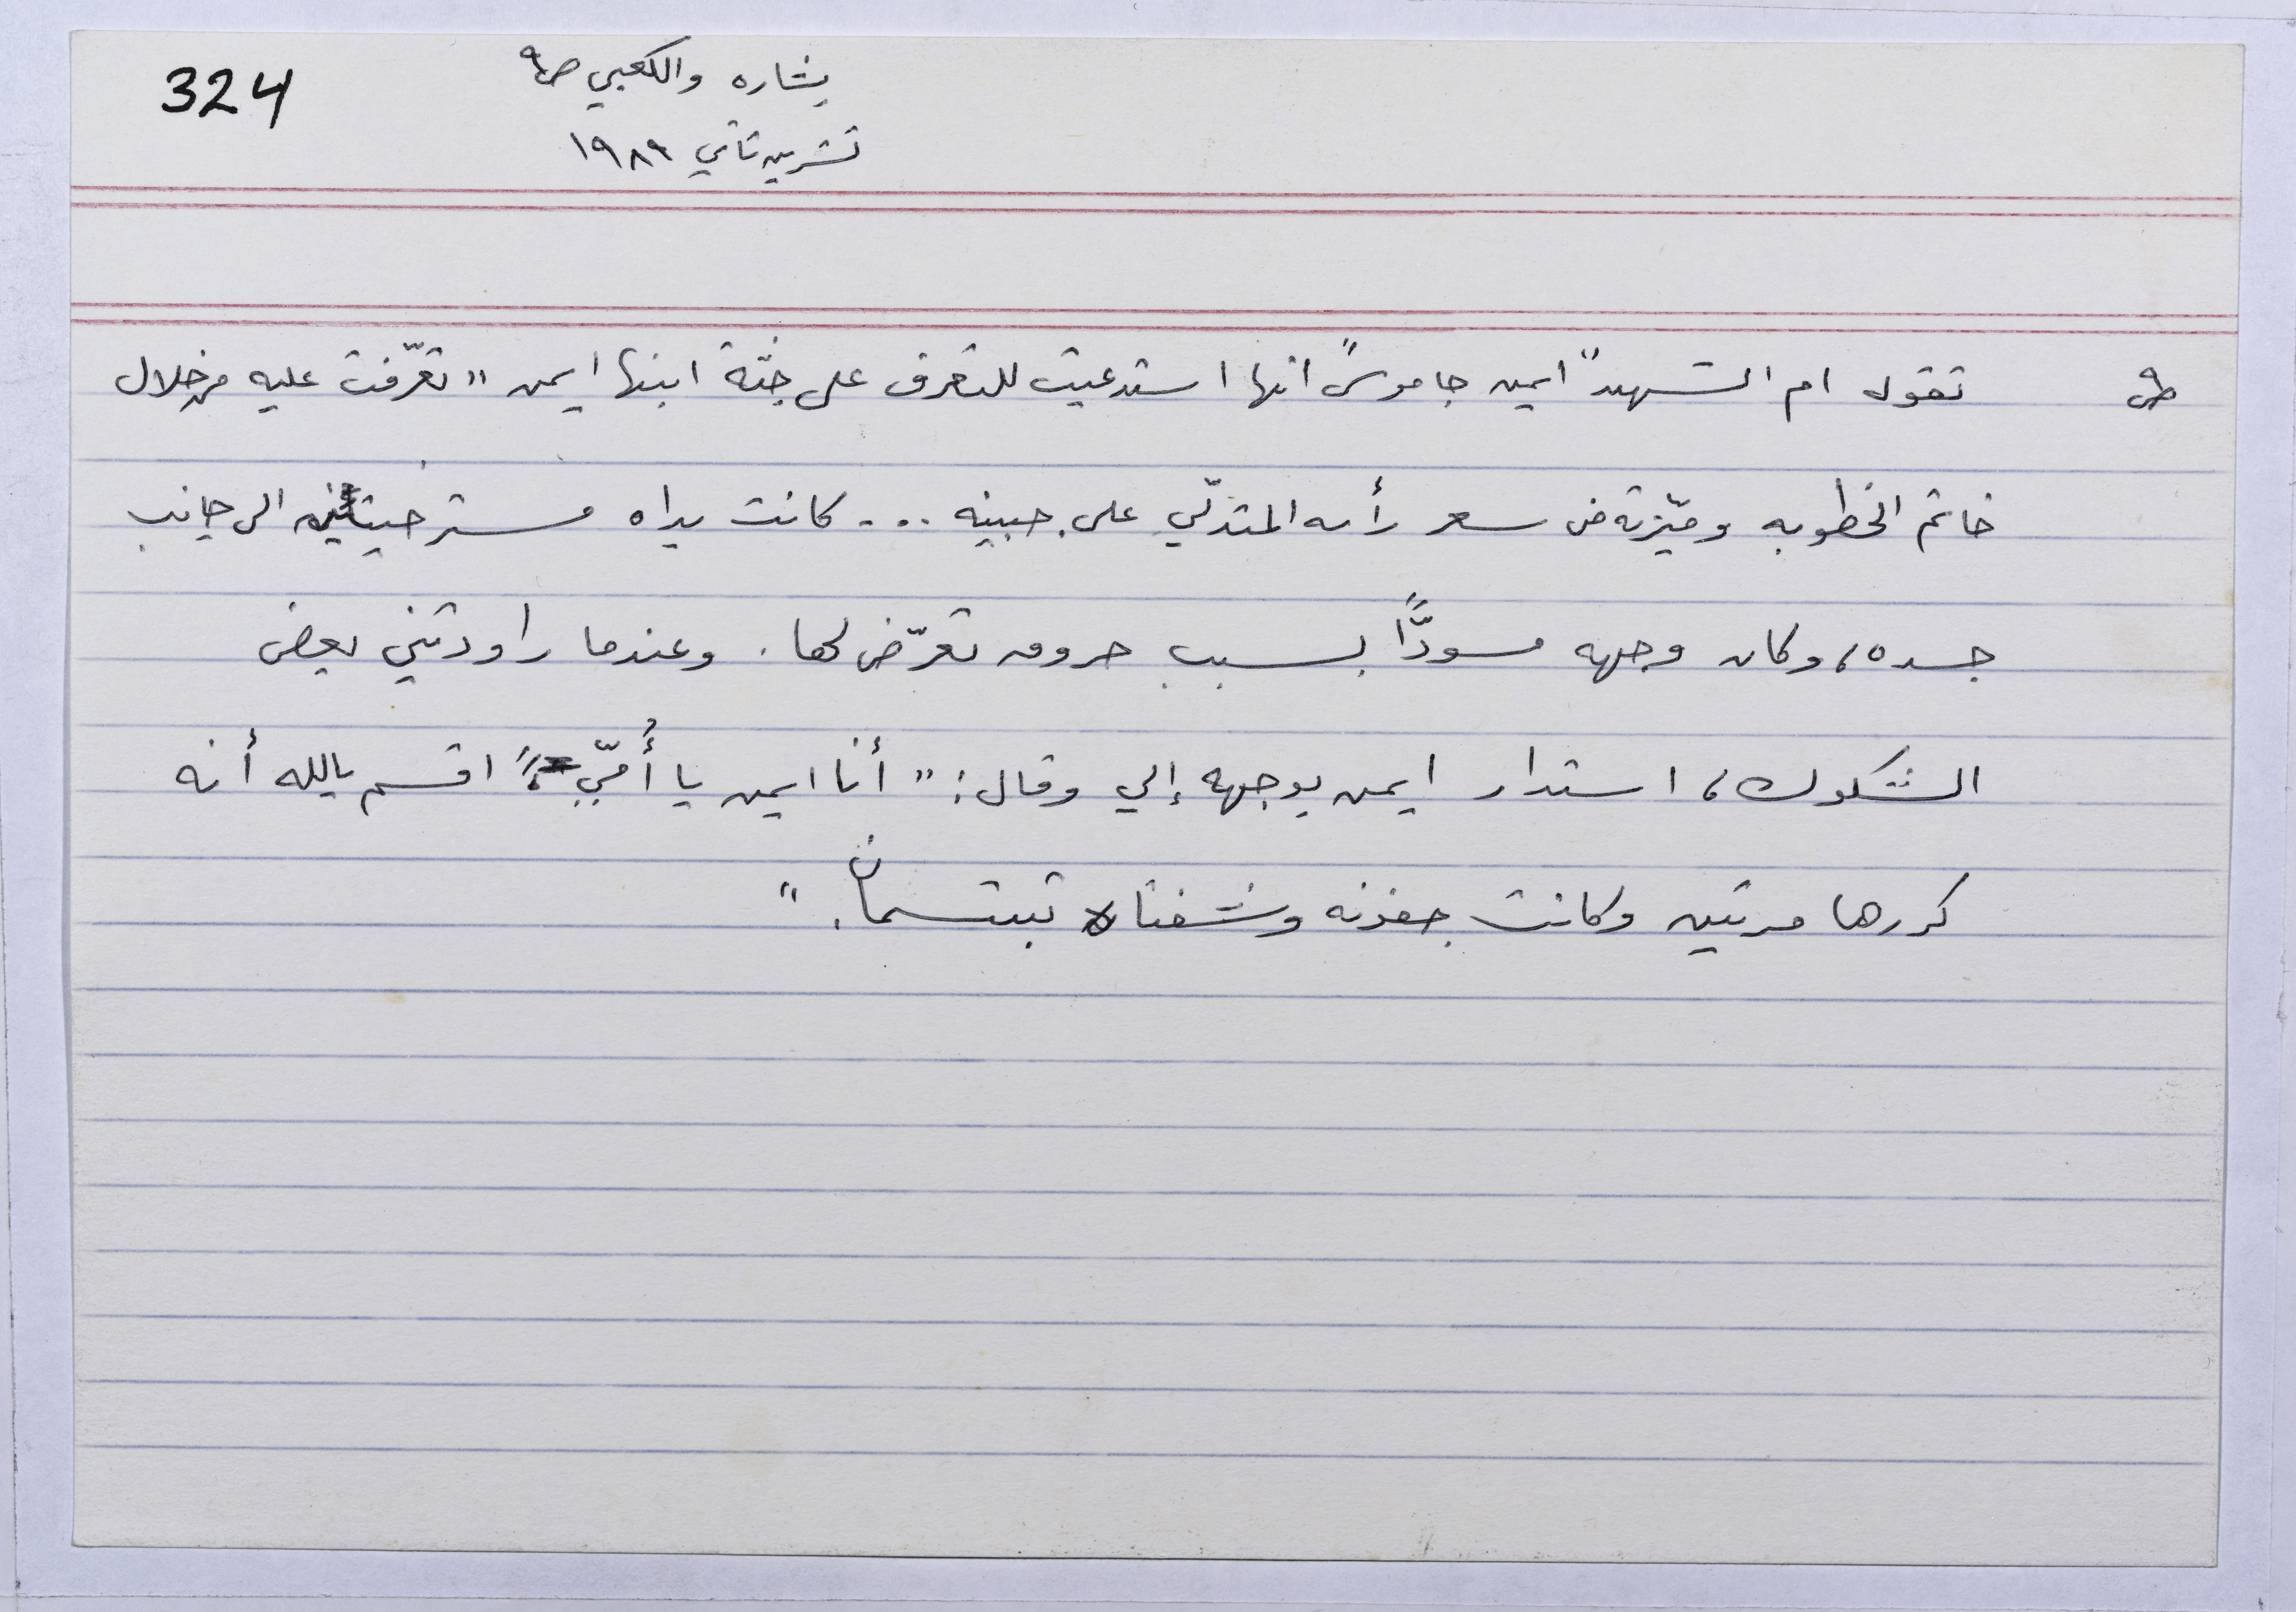 324
بشاره والكعبي ص٩
تشرين ثاني ١٩٨٩
ص٩ تقول ام الشهيد "ايمن جاموس" انها استدعيت للتعرف على جثّة ابنها ايمن "تعرّفت عليه من خلال
خاتم الخطوبه وميّزته من شعر رأسه المتدلّي على جبينه ... كانت يداه مسترخيتين الى جانب
جسده، وكان وجهه مسودًّا بسبب حروق تعرّض لها. وعندما راودتني بعض
الشكوك، استدار ايمن بوجهه إلي وقال: "أنا ايمن يا أُمّي"، اقسم بالله أنه
كررها مرتين وكانت جفونه وشفتاه تبتسمان."